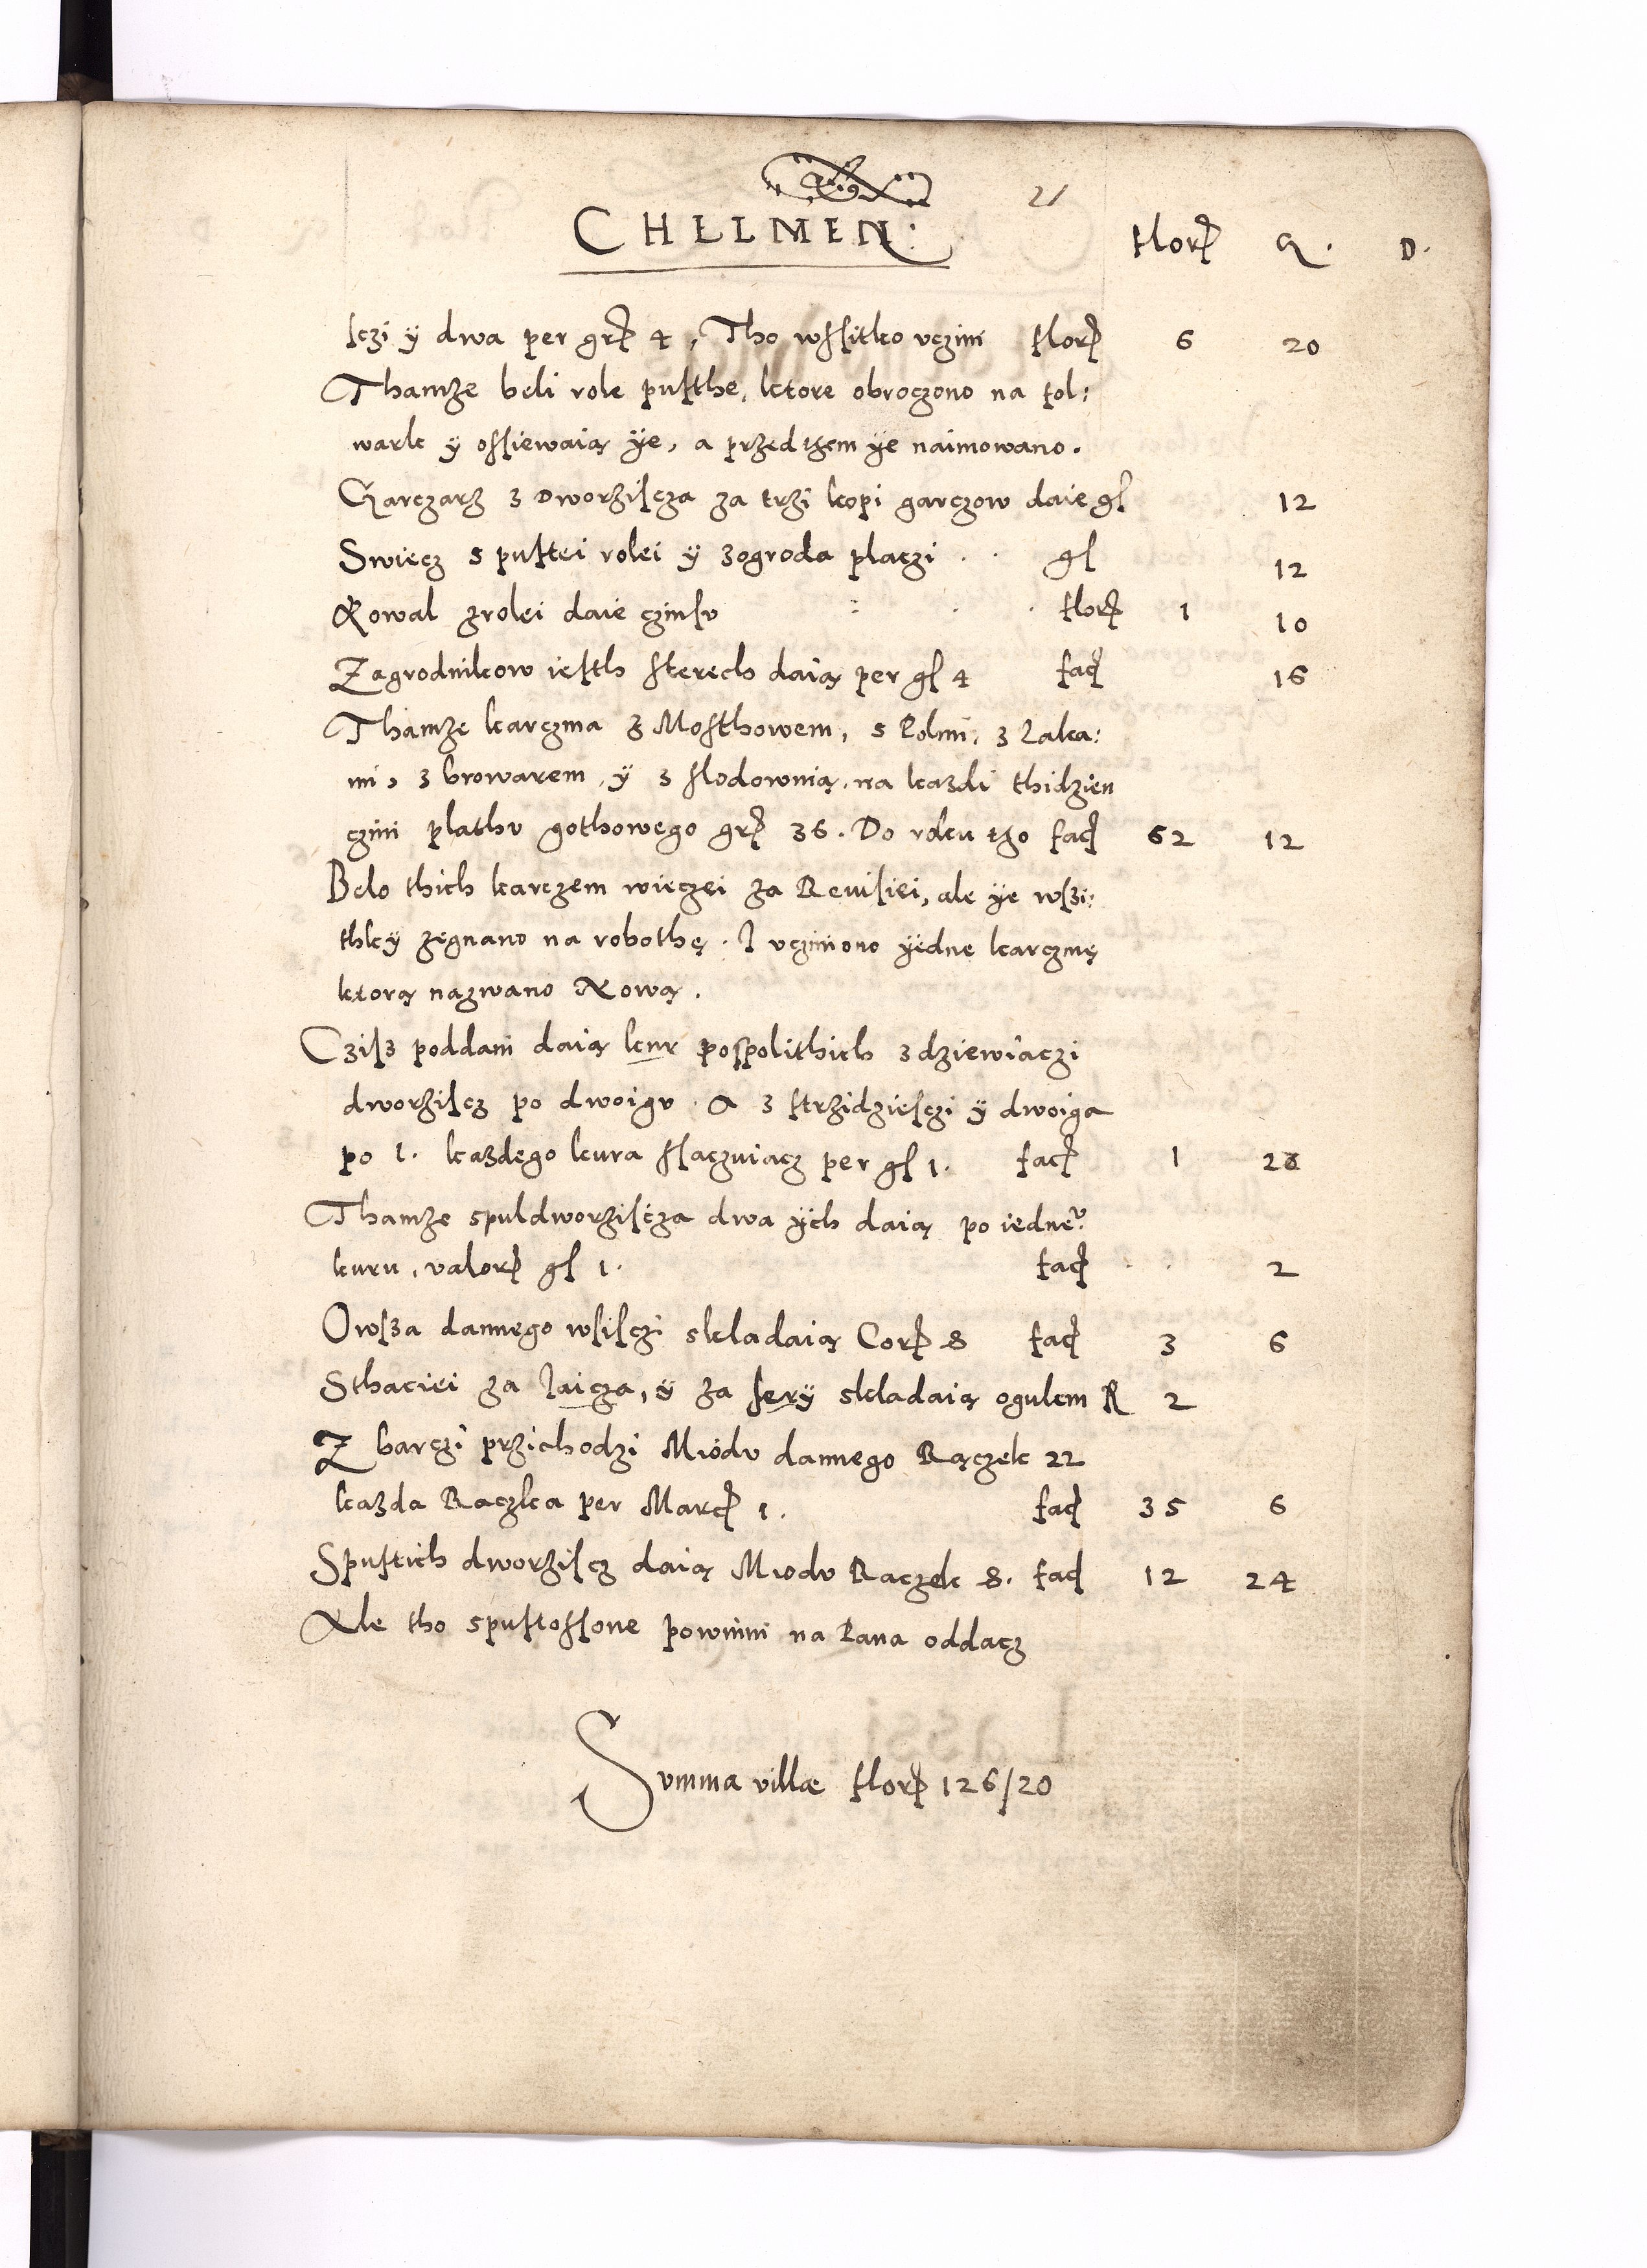 21
CHELMEN: Flor G. D.
sczi y dwa per gr 4, Tho wssitko vczini flor 6 20
Thamże beli role pusthe, ktore obroczono na fol:
wark y ossiewaią ÿe, a przedtzem ÿe naimowano.
Garczarz z Dworziscza za trzi kopi garczow daie gl 12
Swiecz s pustei rolei ÿ zogroda placzi . . gl 12
Kowal zrolei daie czinsv flor 1 10
Zagrodnikow iesth sterech daią per gl 4 fac 16
Thamże karczma z Mosthowem, s Polmi, z Laka:
mi, z browarem, ÿ z slodownią, na każdi thidzien
czini plathv gothowego gr 36. Do roku tgo fac 62 12
Belo thich karczem wieczei za Reuisiei, ale ÿe wszi:
thkÿ zegnano na robothę. I vczinono ÿedne karczmę
ktorą nazwano Nową.
Czisz poddani daią kur pospolithich z dziewiaczi
dworziscz po dwoigv. A z strzidziesczi ÿ dwoiga
po 1. każdego kura ssaczuiacz per gl 1. fac 1 28
Thamże spuldworziscza dwa ÿch daią po iedne
kuru, valor gl 1. fac . . 2
Owsza dannego wsisczi skladaią Cor 8 fac 3 6
Sthaciei za Jaicza, ÿ za serÿ skladaią ogulem R 2
Z barczi przichodzi Miodv dannego Rączek 22
każda Raczka per Marc 1. fac 35 6
Spustich dworziscz daią Miodv Raczek 8. fac 12 24
Ale tho spustossone powinni na Pana oddacz
Summa villæ flor 126/20